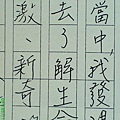 當中,我發
去了解生命
激、新奇